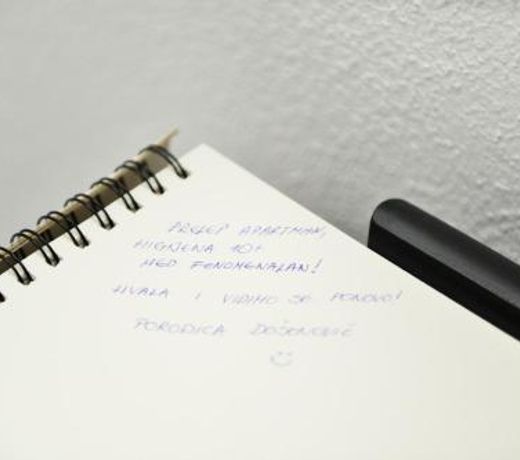 PRELEP APARTMAN,
HIGIJENA 10+
MED FENOMENALAN!
HVALA I VIDIMO SE PONOVO!
PORODICA